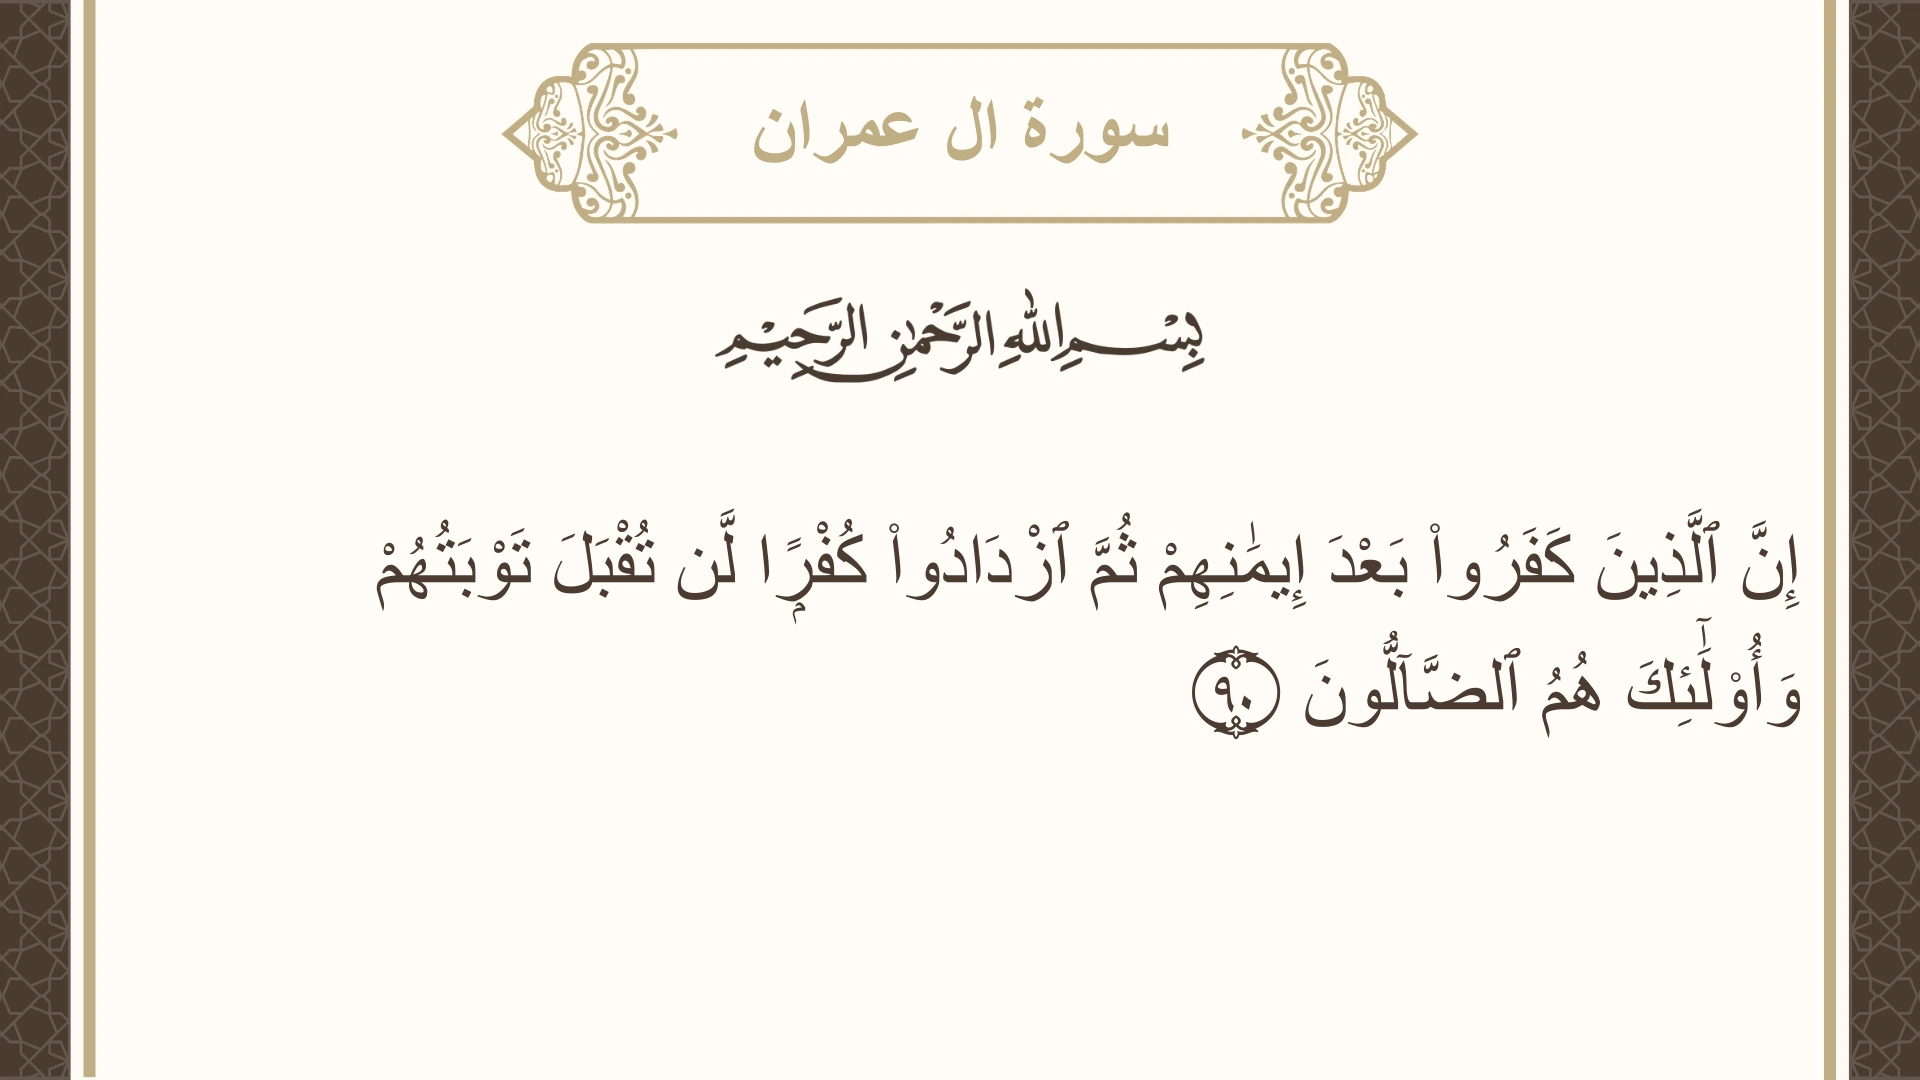 سورة ال عمران
بِسْمِ اللهِ الرَّحْمٰنِ الرَّحِيْمِ
إِنَّ ٱلَّذِينَ كَفَرُوا۟ بَعْدَ إِيمَـٰنِهِمْ ثُمَّ ٱزْدَادُوا۟ كُفْرًۭا لَّن تُقْبَلَ تَوْبَتُهُمْ
وَأُو۟لَـٰٓئِكَ هُمُ ٱلضَّآلُّونَ ٩٠